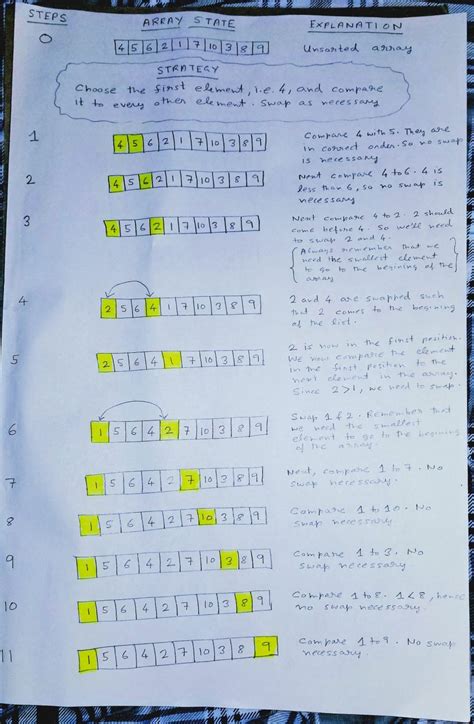 STEPS ARRAY STATE EXPLANATION
0 4 5 6 2 1 7 10 3 8 9 Unsorted array
STRATEGY
Choose the first element, i.e. 4, and compare
it to every other element. Swap as necessary
1 4 5 6 2 1 7 10 3 8 9 Compare 4 with 5. They are
in correct order. So no swap
is necessary
2 4 5 6 2 1 7 10 3 8 9 Next compare 4 to 6. 4 is
less than 6, so no swap is
necessary
3 4 5 6 2 1 7 10 3 8 9 Next compare 4 to 2. 2 should
come before 4. So we'll need
to swap 2 and 4.
(Always remember that we
need the smallest element
to go to the begining of the
array
4 2 5 6 4 1 7 10 3 8 9 2 and 4 are swapped such
that 2 comes to the begining
of the list.
5 2 5 6 4 1 7 10 3 8 9 2 is now in the first position.
We now compare the element
in the first position to the
next element in the array.
Since 2>1, we need to swap.
6 1 5 6 4 2 7 10 3 8 9 Swap 1 & 2. Remember that
we need the smallest
element to go to the begining
of the array.
7 1 5 6 4 2 7 10 3 8 9 Next, compare 1 to 7. No
swap necessary.
8 1 5 6 4 2 7 10 3 8 9 Compare 1 to 10. No
swap necessary.
9 1 5 6 4 2 7 10 3 8 9 Compare 1 to 3. No
swap necessary.
10 1 5 6 4 2 7 10 3 8 9 Compare 1 to 8. 1<8, hence
no swap necessary.
11 1 5 6 4 2 7 10 3 8 9 Compare 1 to 9. No swap
necessary.